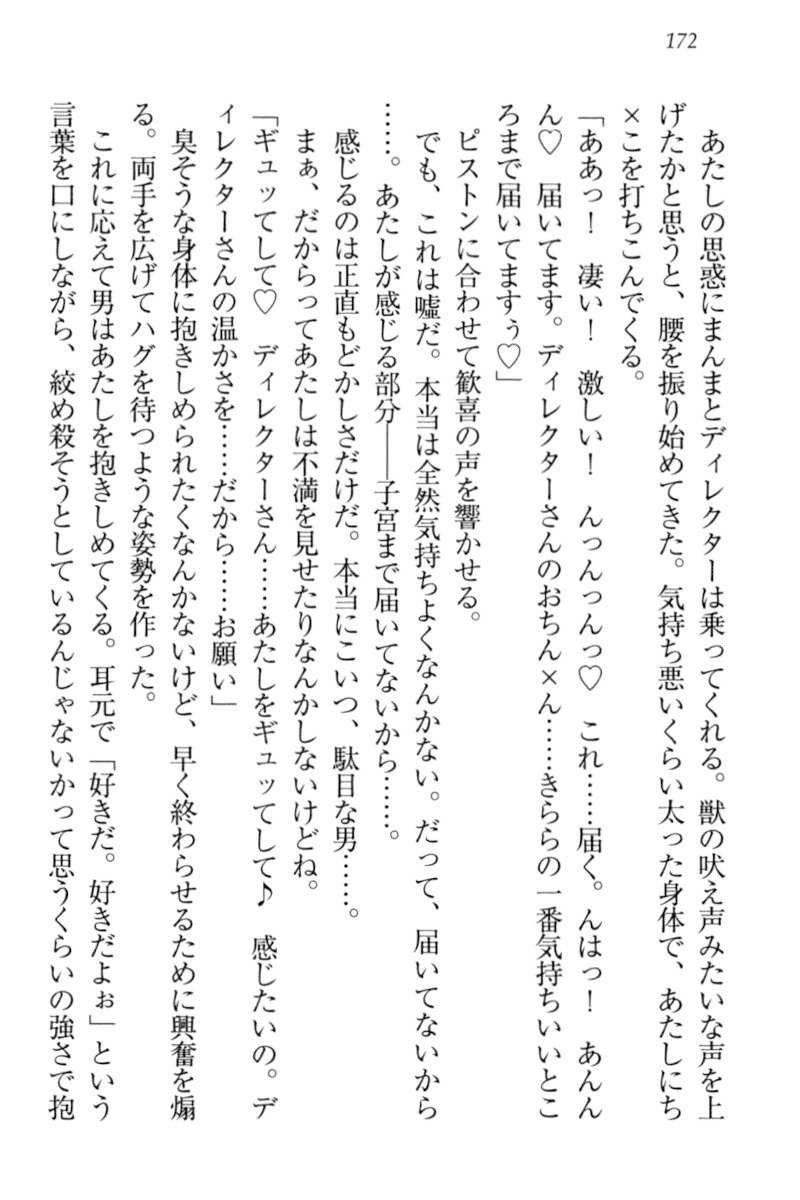 172
　あたしの思惑にまんまとディレクターは乗ってくれる。獣の吠え声みたいな声を上
げたかと思うと、腰を振り始めてきた。気持ち悪いくらい太った身体で、あたしにち
×こを打ちこんでくる。
「ああっ！　凄い！　激しい！　んっんっんっ♡　これ……届く。んはっ！　あんん
ん♡　届いてます。ディレクターさんのおちん×ん……きららの一番気持ちいいとこ
ろまで届いてますぅ♡」
　ピストンに合わせて歓喜の声を響かせる。
　でも、これは嘘だ。本当は全然気持ちよくなんかない。だって、届いてないから
……。あたしが感じる部分――子宮まで届いてないから……。
　感じるのは正直もどかしさだけだ。本当にこいつ、駄目な男……。
　まぁ、だからってあたしは不満を見せたりなんかしないけどね。
「ギュッてして♡　ディレクターさん……あたしをギュッてして♪　感じたいの。デ
ィレクターさんの温かさを……だから……お願い」
　臭そうな身体に抱きしめられたくなんかないけど、早く終わらせるために興奮を煽
る。両手を広げてハグを待つような姿勢を作った。
　これに応えて男はあたしを抱きしめてくる。耳元で「好きだ。好きだよぉ」という
言葉を口にしながら、絞め殺そうとしているんじゃないかって思うくらいの強さで抱